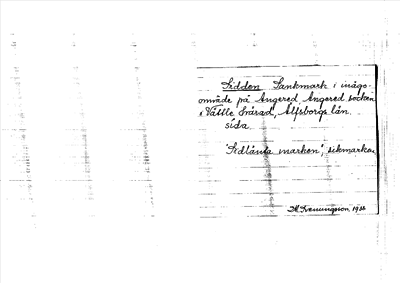 Sidden Sankmark i inägo-
område på Angered Angered socken
i Vättle härad, Älfsborgs län.
sida
"Sidlänta marken", sikmarka
1933